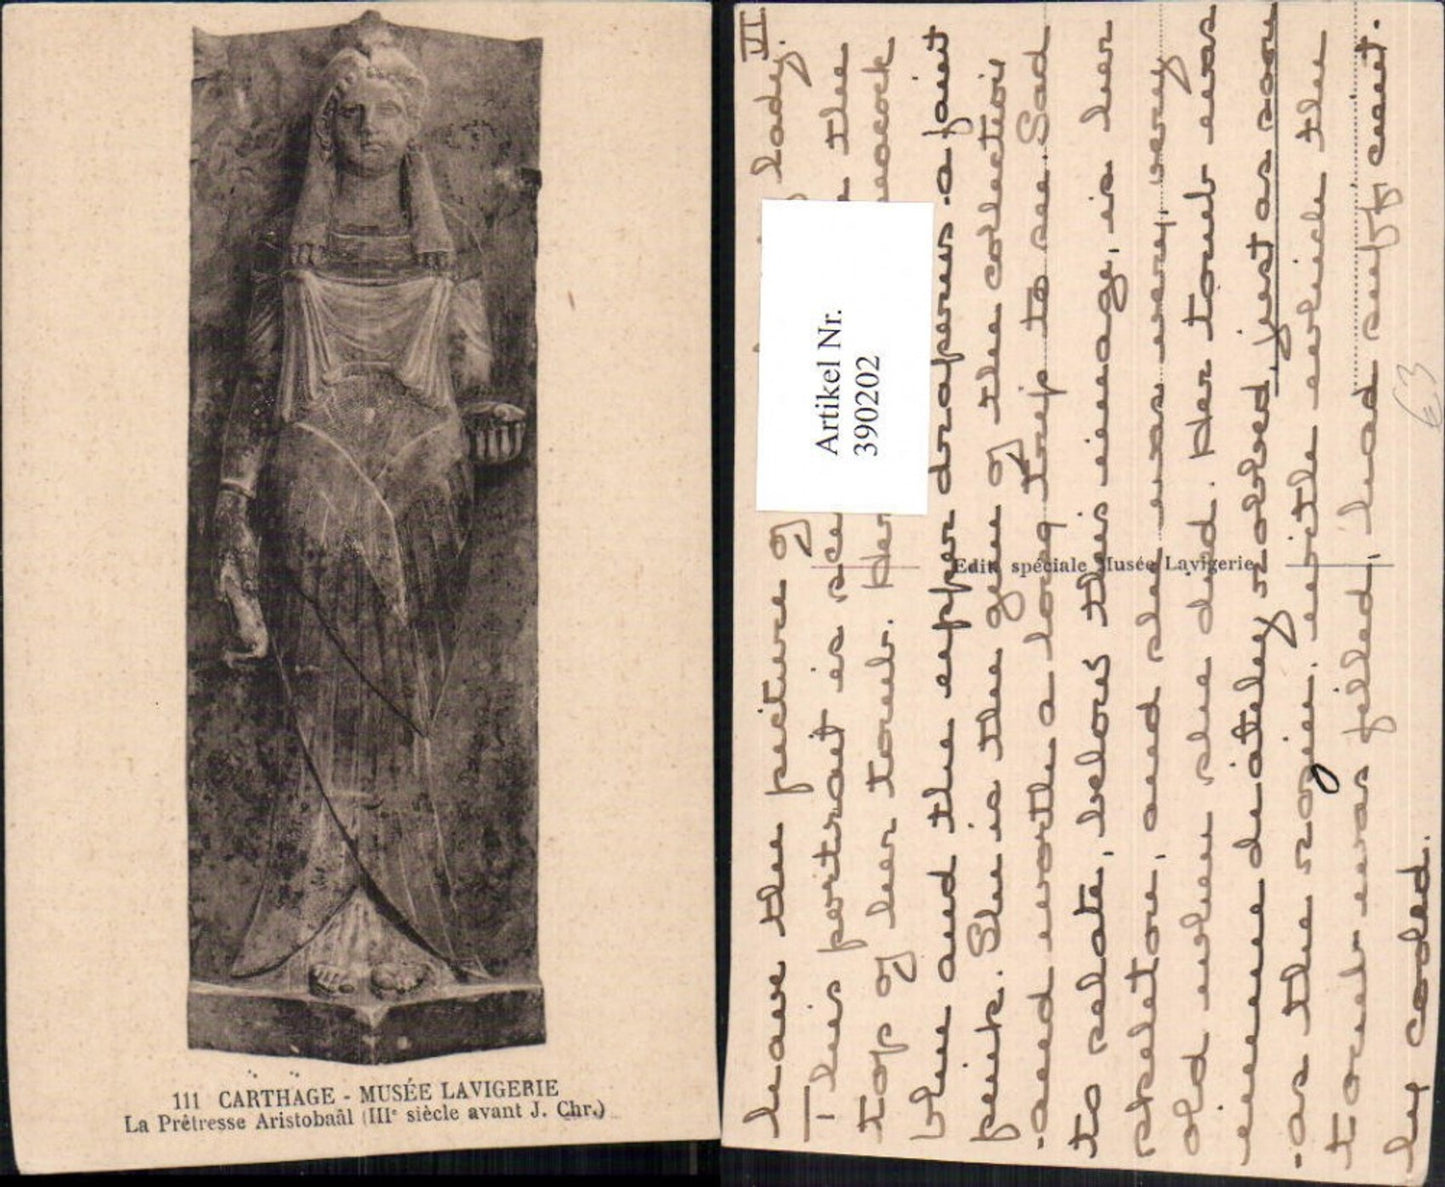 111 CARTHAGE - MUSÉE LAVIGERIE
La Prêtresse Aristobaâl (IIIe siècle avant J. Chr.)
VI
have the picture of lady.
This portrait is the
top of her tomb. Her peacock
blue and the upper draperies a faint
pink. She is the gem of the collection
-and worth a long trip to see. Sad
to relate, below this image, is her
skeleton, and she was very, very
old when she died. Her tomb was
immediately robbed, just as soon
-as the rosin, with which the
tomb was filled, had sufficient-
ly cooled.
Artikel Nr.
390202
Edit. spéciale Musée Lavigerie
€3